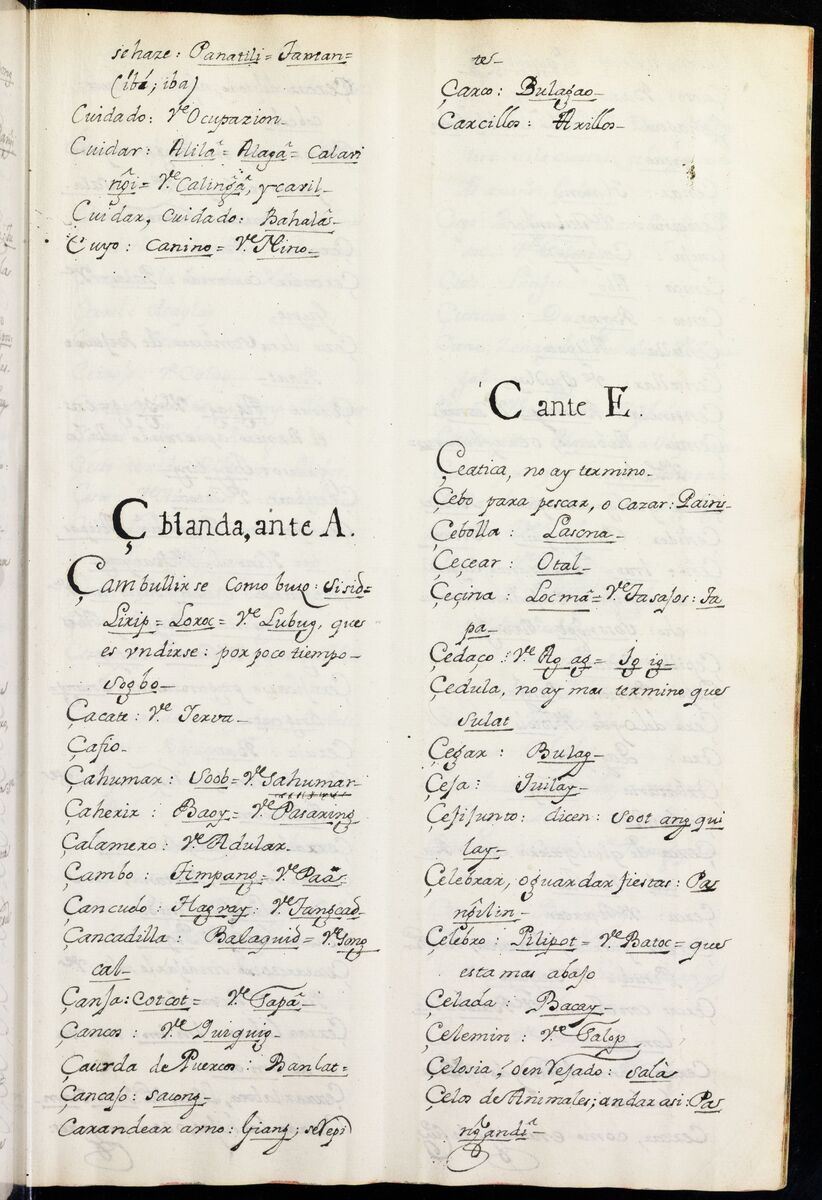 se haze: Panatili = Tantan=
(ibá; iba)
Cuidado: Ve Ocupazion_
Cuidar: Alilâ = Alagâ = Calari
ngi = Ve Calingâ, y caril_
Cuidar, cuidado: Bahalâ_
Cuyo: canino = Ve Nino_
Ç blanda, ante A.
Çambullirse como buzo: Sisid=
Lirip = Loroc = Ve Lubug, que
es vndirse: por poco tiempo_
sogbo_
Çacate: Ve Yerva_
Çafio_
Çahumar: Soob = Ve Sahumar_
Çaherir: Baoy = Ve Pasaring
Çalamero: Ve Adular_
Çambo: Timpang = Ve Paâ
Çancudo: Hagray: Ve Tangcad_
Çancadilla: Balaquid = Ve Song
cal_
Çanja: Cotcot = Ve Tapâ_
Çancos: Ve Quiquig_
Çaurda de Puercos: Banlat=
Çancajo: sacong_
Carandear arno: Giang; se Vepi
tes_
Çarco: Bulagao_
Carcillos: Arillos_
C ante E.
Çeatica, no ay termino_
Çebo para pescar, o cazar: Pain_
Çebolla: Lasona_
Çeçear: Otal_
Çeçina: Locmâ = Ve Tasajos: Ta
pa_
Çedaço: Ve Ag ag = Ig ig_
Çedula, no ay mas termino que
sulat
Çegar: Bulag_
Çeja: Quilay_
Çejijunto: dicen: Soot ang qui
lay_
Çelebrar, o guardar fiestas: Pa
ngilin_
Çelebro: Pilipot = Ve Batoc = que
esta mas abajo
Çelada: Bacay_
Çelemin: Ve Salop
Çelosia, o enVejado: salà
Çelos de Animales; andar asi: Pa
ngandî_